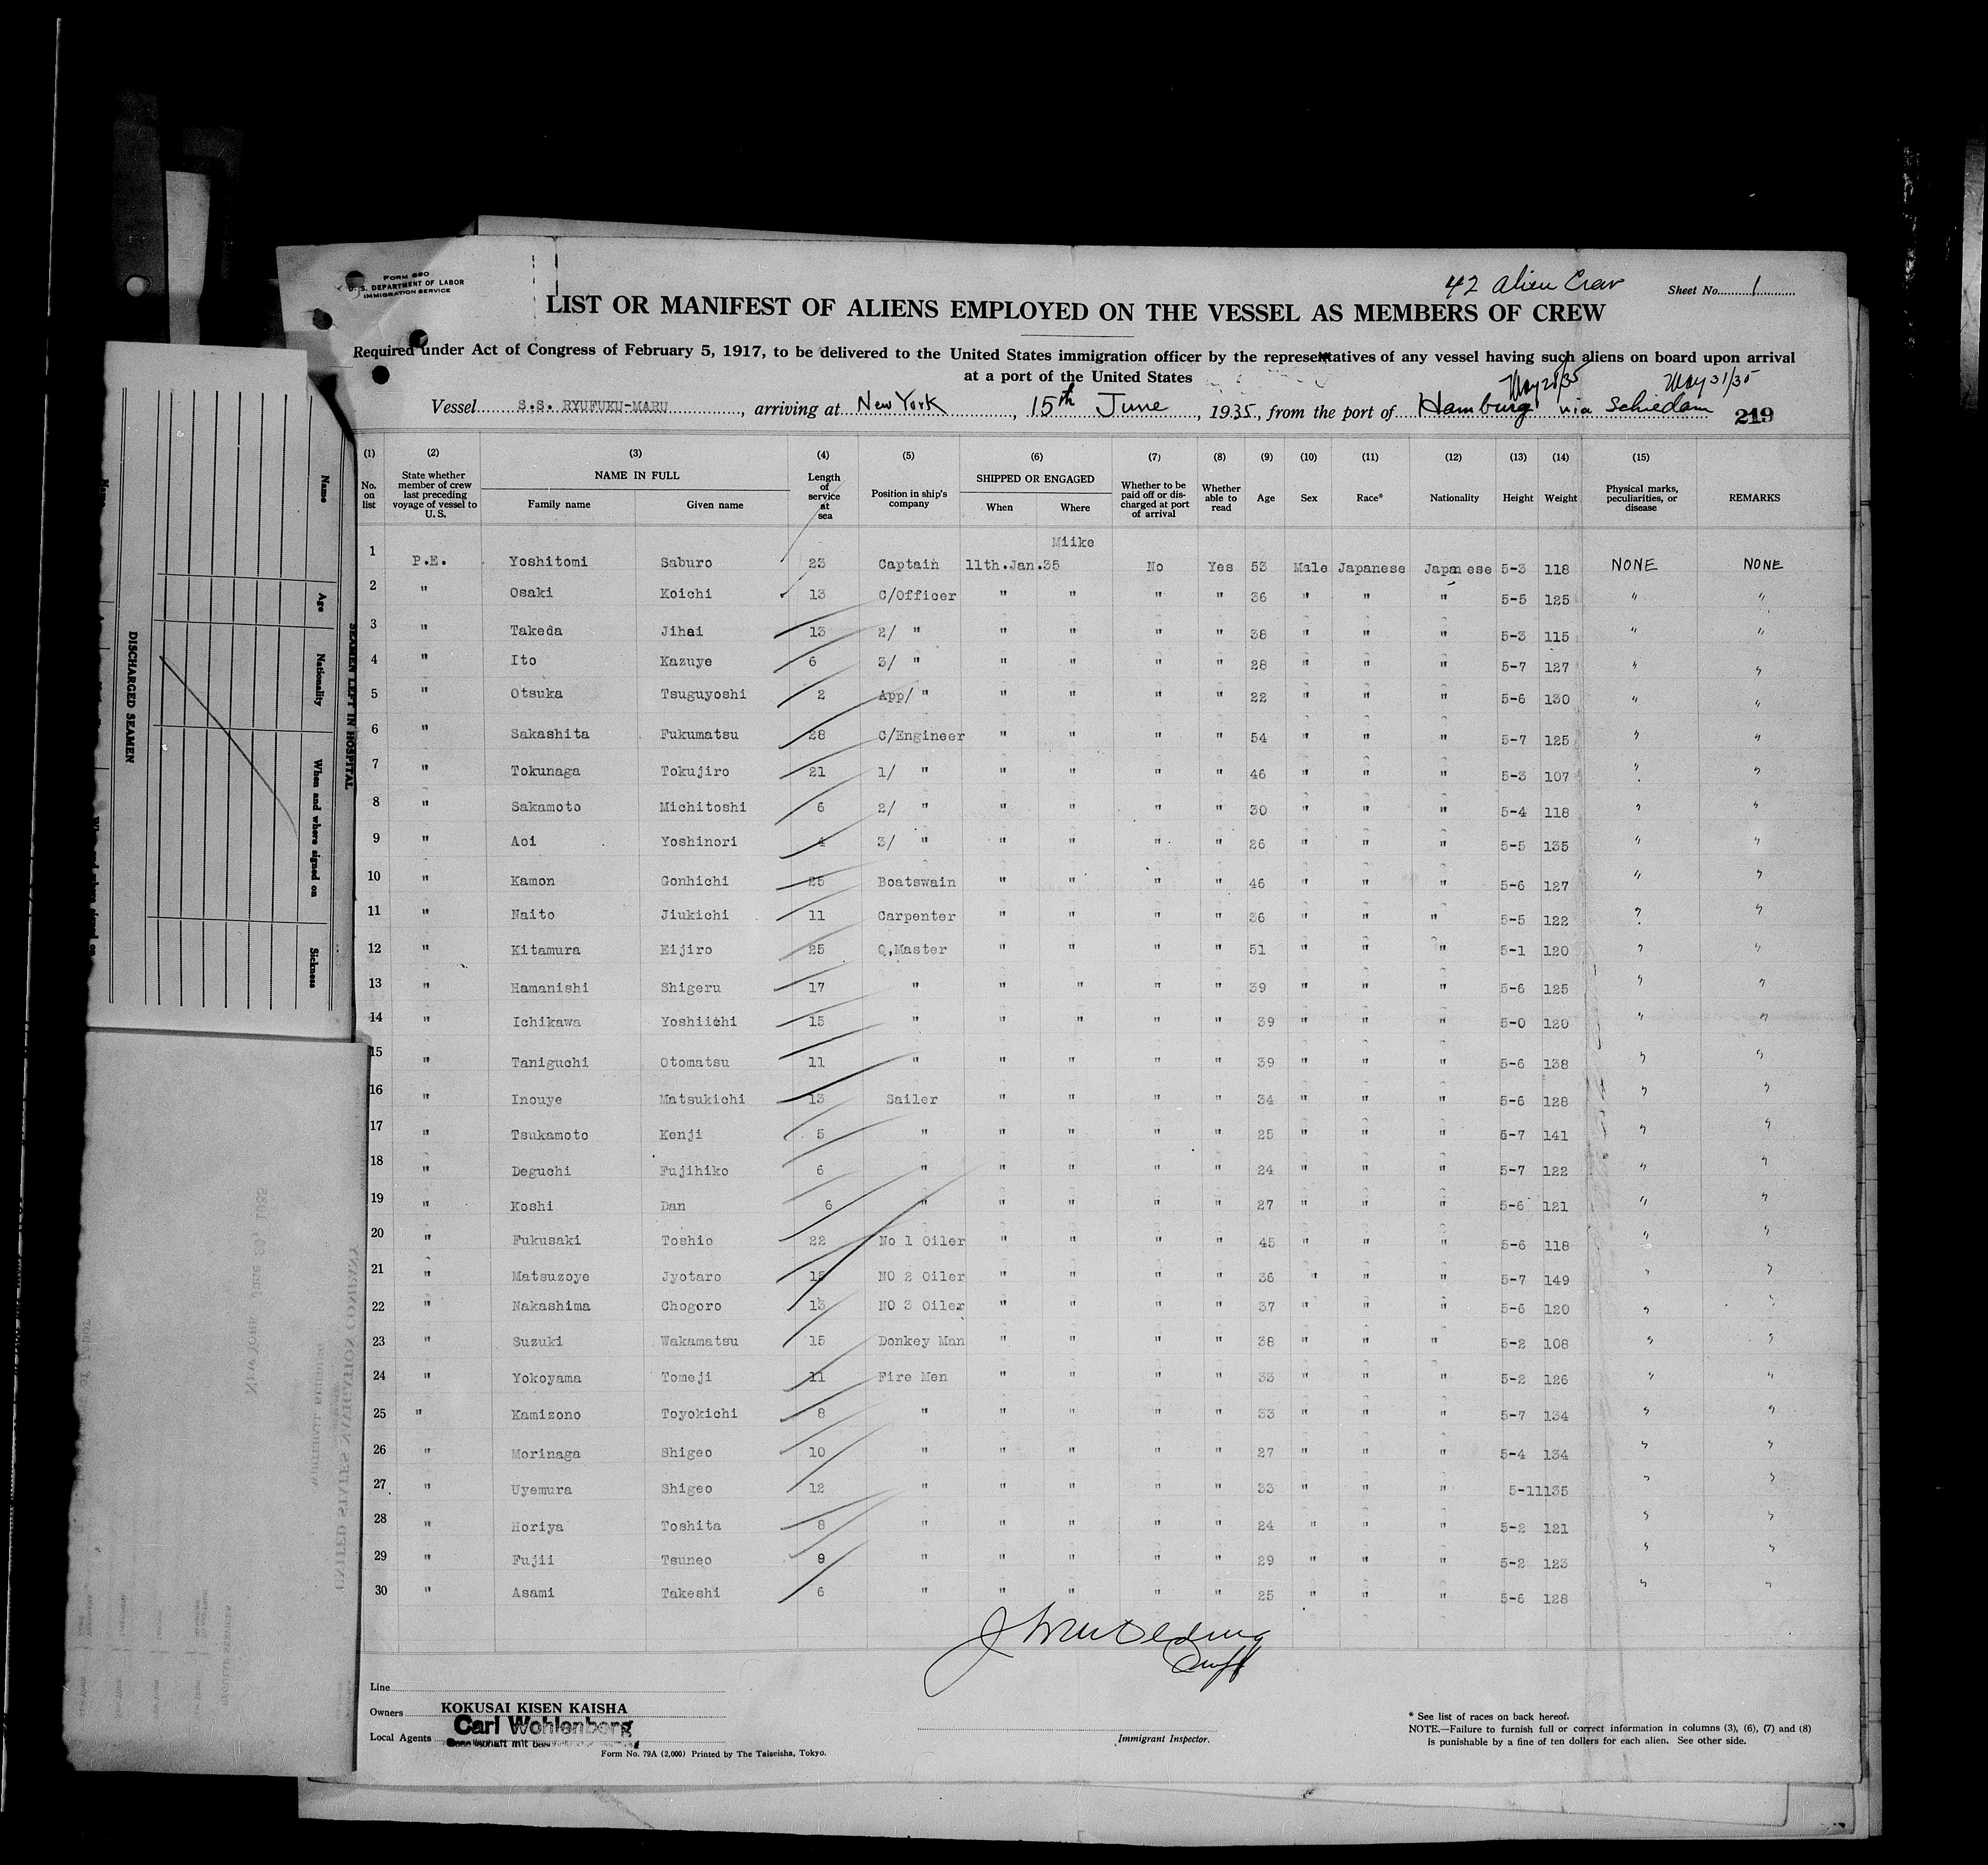 FORM 680
U. S. DEPARTMENT OF LABOR
IMMIGRATION SERVICE
42 Alien Crew
Sheet No. 1
LIST OR MANIFEST OF ALIENS EMPLOYED ON THE VESSEL AS MEMBERS OF CREW
Required under Act of Congress of February 5, 1917, to be delivered to the United States immigration officer by the representatives of any vessel having such aliens on board upon arrival
at a port of the United States
May 28/35 May 31/35
Vessel S.S. RYUFUKU-MARU, arriving at New York, 15th June, 1935, from the port of Hamburg via Schiedam 219
(1) (2) (3) (4) (5) (6) (7) (8) (9) (10) (11) (12) (13) (14) (15)
No. on list State whether member of crew last preceding voyage of vessel to U. S. NAME IN FULL Family name Given name Length of service at sea Position in ship's company SHIPPED OR ENGAGED When Where Whether to be paid off or discharged at port of arrival Whether able to read Age Sex Race* Nationality Height Weight Physical marks, peculiarities, or disease REMARKS
Miike
1 P.E. Yoshitomi Saburo 23 Captain 11th.Jan.35 No Yes 53 Male Japanese Japanese 5-3 118 NONE NONE
2 " Osaki Koichi 13 C/Officer " " " " 36 " " " 5-5 125 " "
3 " Takeda Jihei 13 2/ " " " " " 38 " " " 5-3 115 " "
4 " Ito Kazuye 6 3/ " " " " " 28 " " " 5-7 127 " "
5 " Otsuka Tsuguyoshi 2 App/ " " " " " 22 " " " 5-6 130 " "
6 " Sakashita Fukumatsu 28 C/Engineer " " " " 54 " " " 5-7 125 " "
7 " Tokunaga Tokujiro 21 1/ " " " " " 46 " " " 5-3 107 " "
8 " Sakamoto Michitoshi 6 2/ " " " " " 30 " " " 5-4 118 " "
9 " Aoi Yoshinori 4 3/ " " " " " 26 " " " 5-5 135 " "
10 " Kamon Gonhichi 25 Boatswain " " " " 46 " " " 5-6 127 " "
11 " Naito Jiukichi 11 Carpenter " " " " 36 " " " 5-5 122 " "
12 " Kitamura Eijiro 25 Q,Master " " " " 51 " " " 5-1 120 " "
13 " Hamanishi Shigeru 17 " " " " " 39 " " " 5-6 125 " "
14 " Ichikawa Yoshiichi 15 " " " " " 39 " " " 5-0 120 " "
15 " Taniguchi Otomatsu 11 " " " " " 39 " " " 5-6 138 " "
16 " Inouye Matsukichi 13 Sailer " " " " 34 " " " 5-6 128 " "
17 " Tsukamoto Kenji 5 " " " " " 25 " " " 5-7 141 " "
18 " Deguchi Fujihiko 6 " " " " " 24 " " " 5-7 122 " "
19 " Koshi Dan 6 " " " " " 27 " " " 5-6 121 " "
20 " Fukusaki Toshio 22 No 1 Oiler " " " " 45 " " " 5-6 118 " "
21 " Matsuzoye Jyotaro 15 NO 2 Oiler " " " " 36 " " " 5-7 149 " "
22 " Nakashima Chogoro 13 NO 3 Oiler " " " " 37 " " " 5-6 120 " "
23 " Suzuki Wakamatsu 15 Donkey Man " " " " 38 " " " 5-2 108 " "
24 " Yokoyama Tomeji 11 Fire Men " " " " 33 " " " 5-2 126 " "
25 " Kamizono Toyokichi 8 " " " " " 33 " " " 5-7 134 " "
26 " Morinaga Shigeo 10 " " " " " 27 " " " 5-4 134 " "
27 " Uyemura Shigeo 12 " " " " " 33 " " " 5-11135 " "
28 " Horiya Toshita 8 " " " " " 24 " " " 5-2 121 " "
29 " Fujii Tsuneo 9 " " " " " 29 " " " 5-2 123 " "
30 " Asami Takeshi 6 " " " " " 25 " " " 5-6 128 " "
Line
Owners KOKUSAI KISEN KAISHA
Local Agents Carl Wohlenberg
Gesellschaft mit
Form No. 79A (2,000) Printed by The Taiseisha, Tokyo.
Immigrant Inspector.
* See list of races on back hereof.
NOTE.—Failure to furnish full or correct information in columns (3), (6), (7) and (8)
is punishable by a fine of ten dollars for each alien. See other side.
SEAMEN LEFT IN HOSPITAL
Name Age Nationality When and where signed on Sickness
DISCHARGED SEAMEN